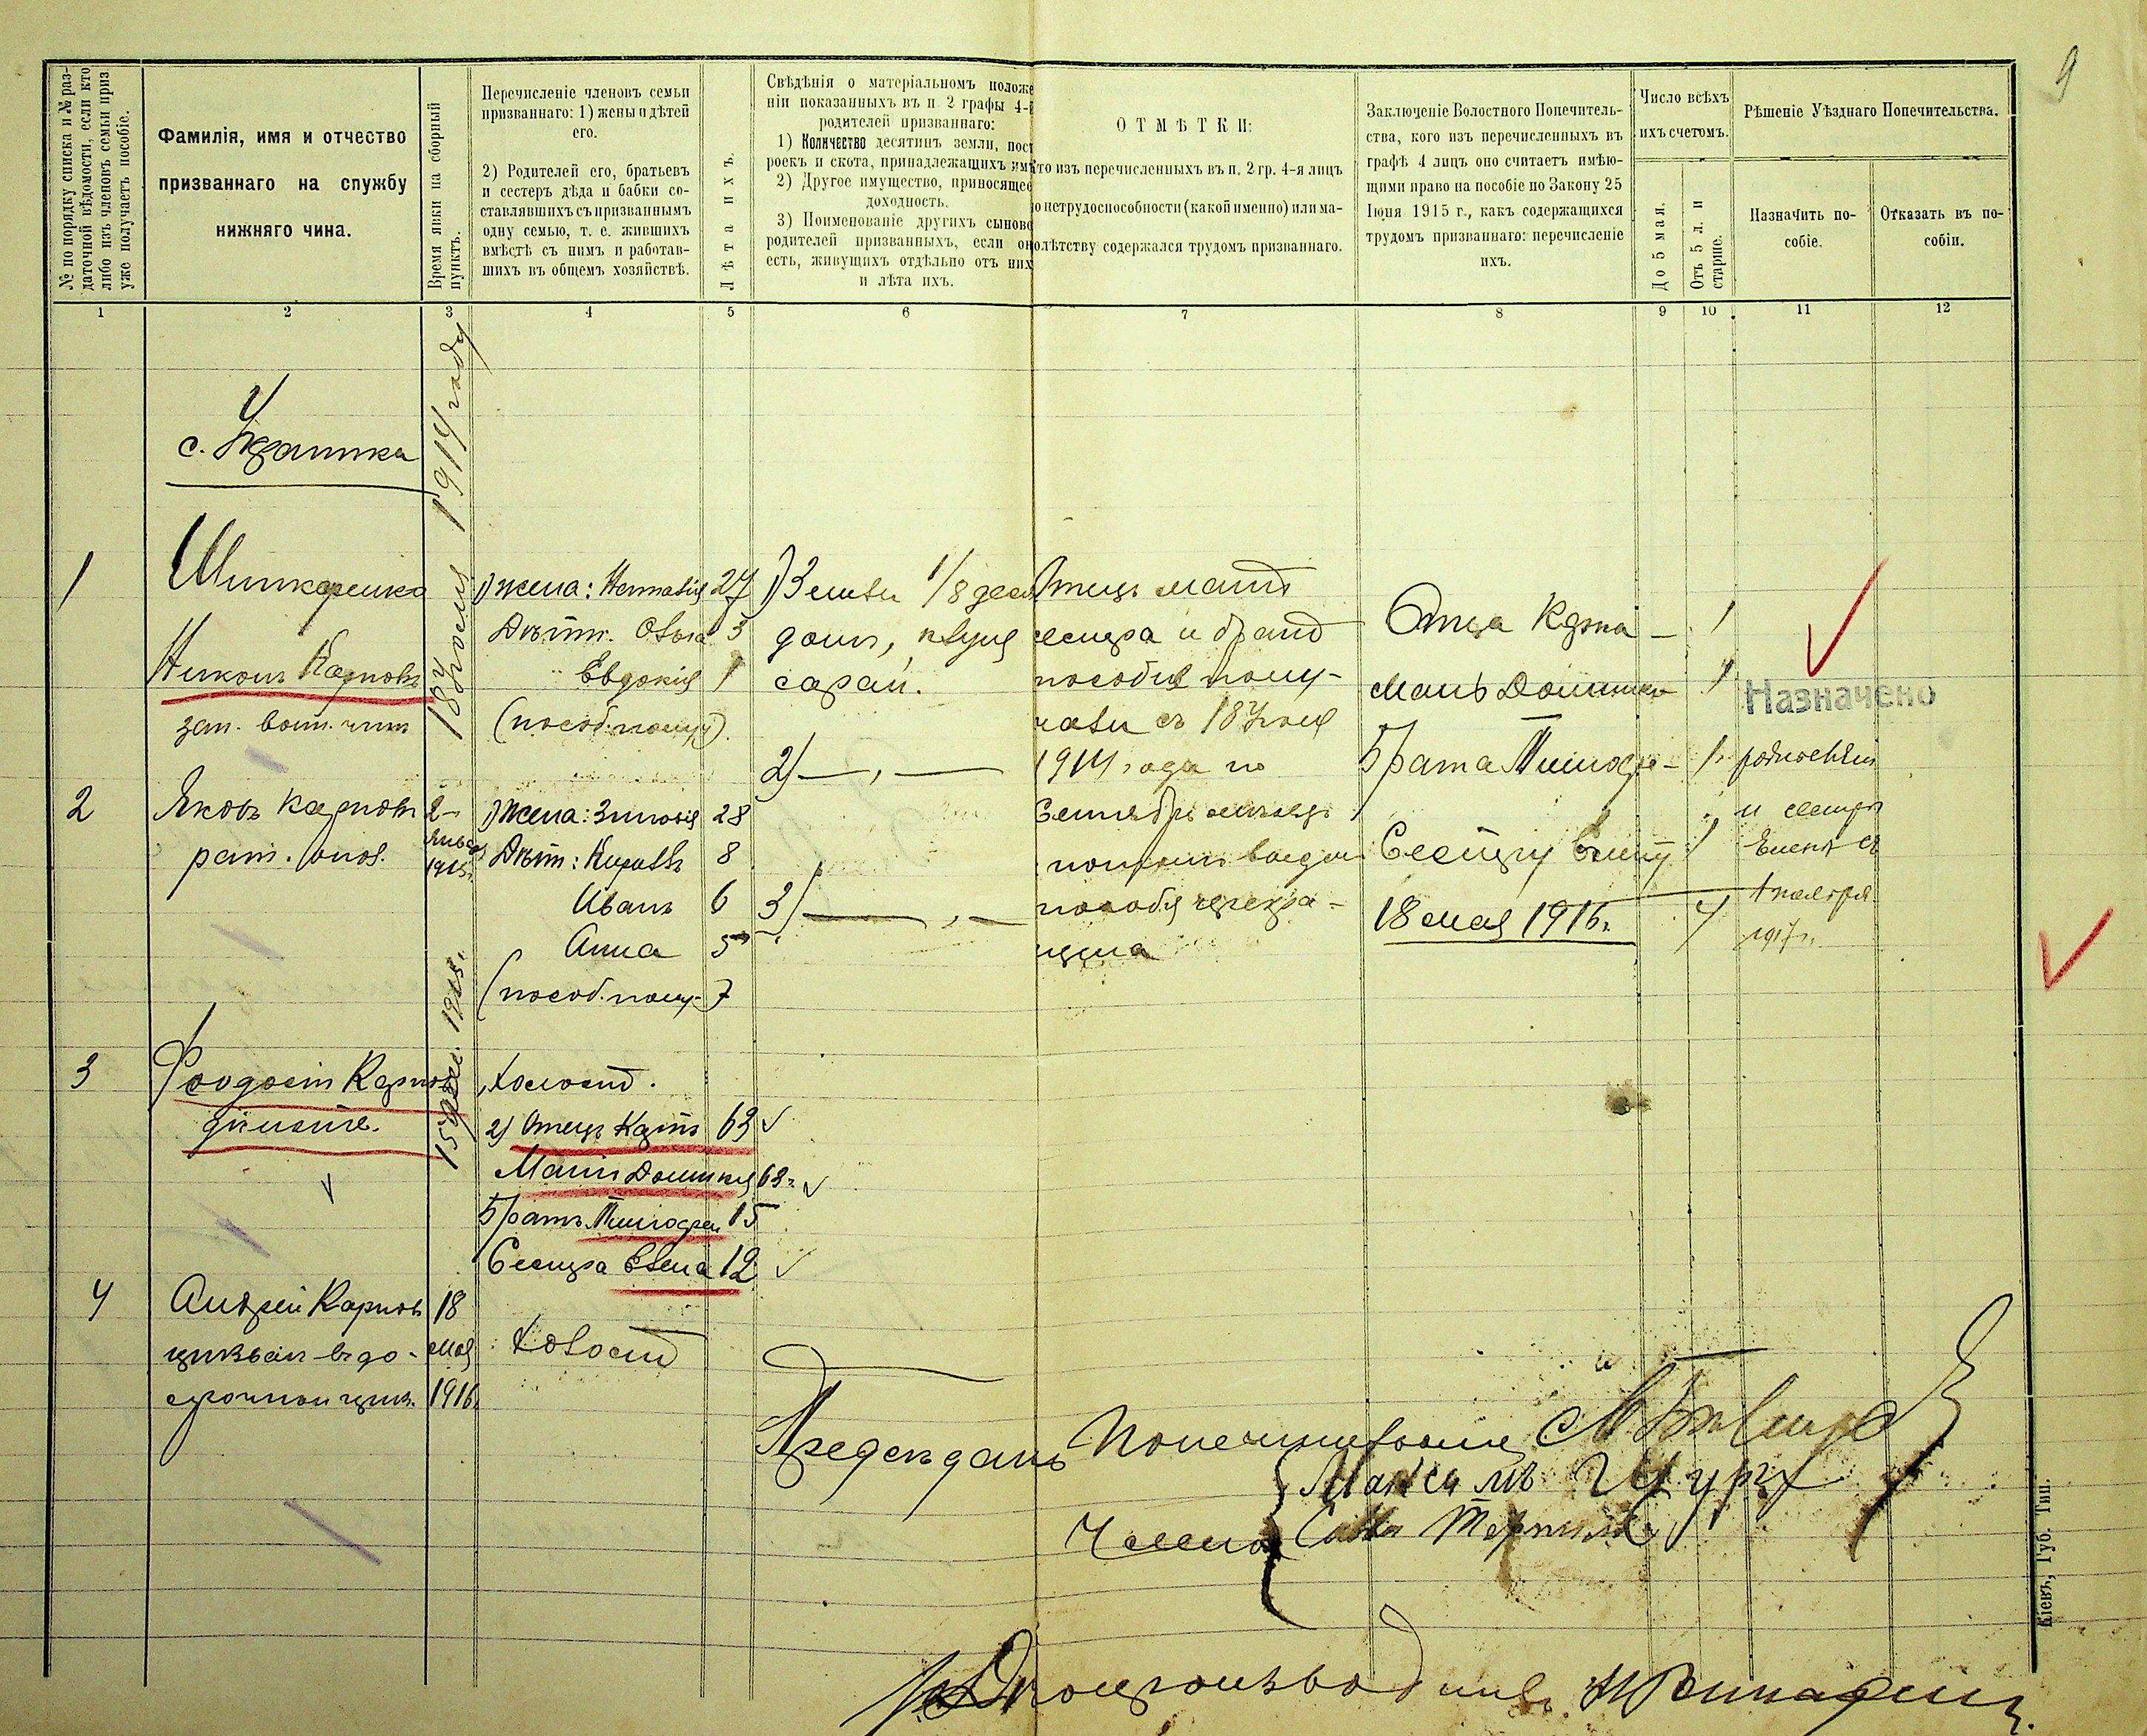 9
№ по порядку списка и № раз-
даточной вѣдомости, если кто
либо изъ членовъ семьи приз
уже получаетъ пособіе.
Фамилія, имя и отчество
призваннаго на службу
нижняго чина.
Время явки на сборный
пунктъ.
Перечисленіе членовъ семьи
призваннаго: 1) жены и дѣтей
его.
2) Родителей его, братьевъ
и сестеръ дѣда и бабки со-
ставлявшихъ съ призваннымъ
одну семью, т. е. жившихъ
вмѣстѣ съ нимъ и работав-
шихъ въ общемъ хозяйствѣ.
Лѣта ихъ.
Свѣдѣнія о матеріальномъ положе
ніи показанныхъ въ п 2 графы 4-й
родителей призваннаго:
1) Количество десятинъ земли, пост
роекъ и скота, принадлежащихъ им
2) Другое имущество, приносящее
доходность.
3) Поименованіе другихъ сынове
родителей призванныхъ, если он
есть, живущихъ отдѣльно отъ них
и лѣта ихъ.
ОТМѢТКИ:
то изъ перечисленныхъ въ п. 2 гр. 4-я лицъ
о нетрудоспособности (какой именно) или ма-
олѣтству содержался трудомъ призваннаго.
Заключеніе Волостного Попечитель-
ства, кого изъ перечисленныхъ въ
графѣ 4 лицъ оно считаетъ имѣю-
щими право на пособіе по Закону 25
Іюня 1915 г., какъ содержащихся
трудомъ призваннаго: перечисленіе
ихъ.
Число всѣхъ
ихъ счетомъ.
До 5 мая.
Отъ 5 л. и
старше.
Рѣшеніе Уѣзднаго Попечительства.
Назначить по-
собіе.
Отказать въ по-
собіи.
1 2 3 4 5 6 7 8 9 10 11 12
с.
18 Іюля 1914 году
1
Шинкаренко
Никонъ Карповъ
зап.
1) жена: 27
Дѣти. 3
Евдокія 1
(пособ. получ.)
1) Земли 1/8 дес
домъ, клуня
сарай.
2) — , —
3) — , —
Отецъ мать
сестра и братъ
пособія полу-
чали съ 18 Іюля
1914 года по
Сентябрь мѣсяцъ
пособія
Отца Карпа — 1
Мать 1
Брата Тимофе- 1
Сестру Елену 1
18 мая 1916 г. 4
Назначено
и сестрѣ
Еленѣ съ
1917 г.
2
Яковъ Карповъ
рат. опол.
2
Января
1915 г.
1) Жена: Зиновія 28
Дѣти: Кириллъ 8
Иванъ 6
Анна 5
(пособ. получ.)
3
Феодосій Карповъ
15 1915 г.
Холостъ.
2) Отецъ Карпъ 63
Мать 63
Братъ Тимофей 15
Сестра Елена 12
4
Андрей Карповъ
призванъ въ до-
срочный приз.
18
Мая
1916
Холостъ
Предсѣдатель Попечительства
Члены
Максимъ
Дѣлопроизводитель
Кіевъ, Губ. Тип.